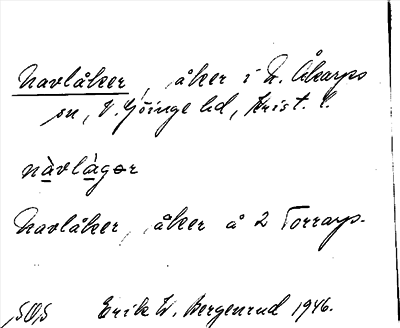 Navlåker, åker i N. Åkarps
sn, V. Göinge hd, Krist. l.
nàvlàgər
Navlåker, åker å 2 Torrarp.
SOS Erik W. Bergenrud 1946.